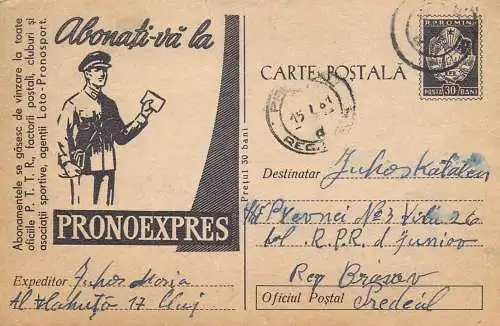 Abonați-vă la
PRONOEXPRES
Abonamentele se găsesc de vînzare la toate
oficiile P. T. T. R., factorii poștali, cluburi și
asociații sportive, agenții Loto-Pronosport.
Expeditor Juhos Maria
Al. 17 Cluj
Prețul 30 bani
CARTE POȘTALĂ
R.P.ROMINĂ
POSTA 30 BANI
15
REG.
Destinatar Juhos Katalin
Plevnei No 7 Vila 26
R.P.R. d junior
Reg Brașov
Oficiul Poștal Predeal